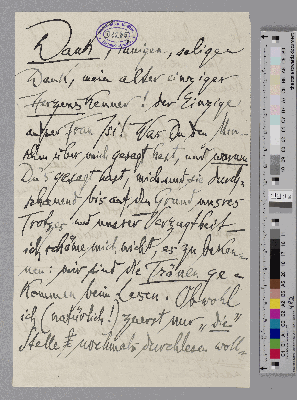 Dank, innigen, seligen
Dank, mein alter einziger
Herzenskenner! der Einzige
außer Frau Isi! Was Du den Men-
schen über mich gesagt hast, und warum
Du's gesagt hast, mich und sie durch-
schauend bis auf den Grund unsres
Trotzes und unserer Verzagtheit –
ich schäme mich nicht, es zu beken-
nen: mir sind die Tränen ge-
kommen beim Lesen. Obwohl
ich (natürlich!) zuerst nur „die"
Stelle nochmals durchlesen woll-